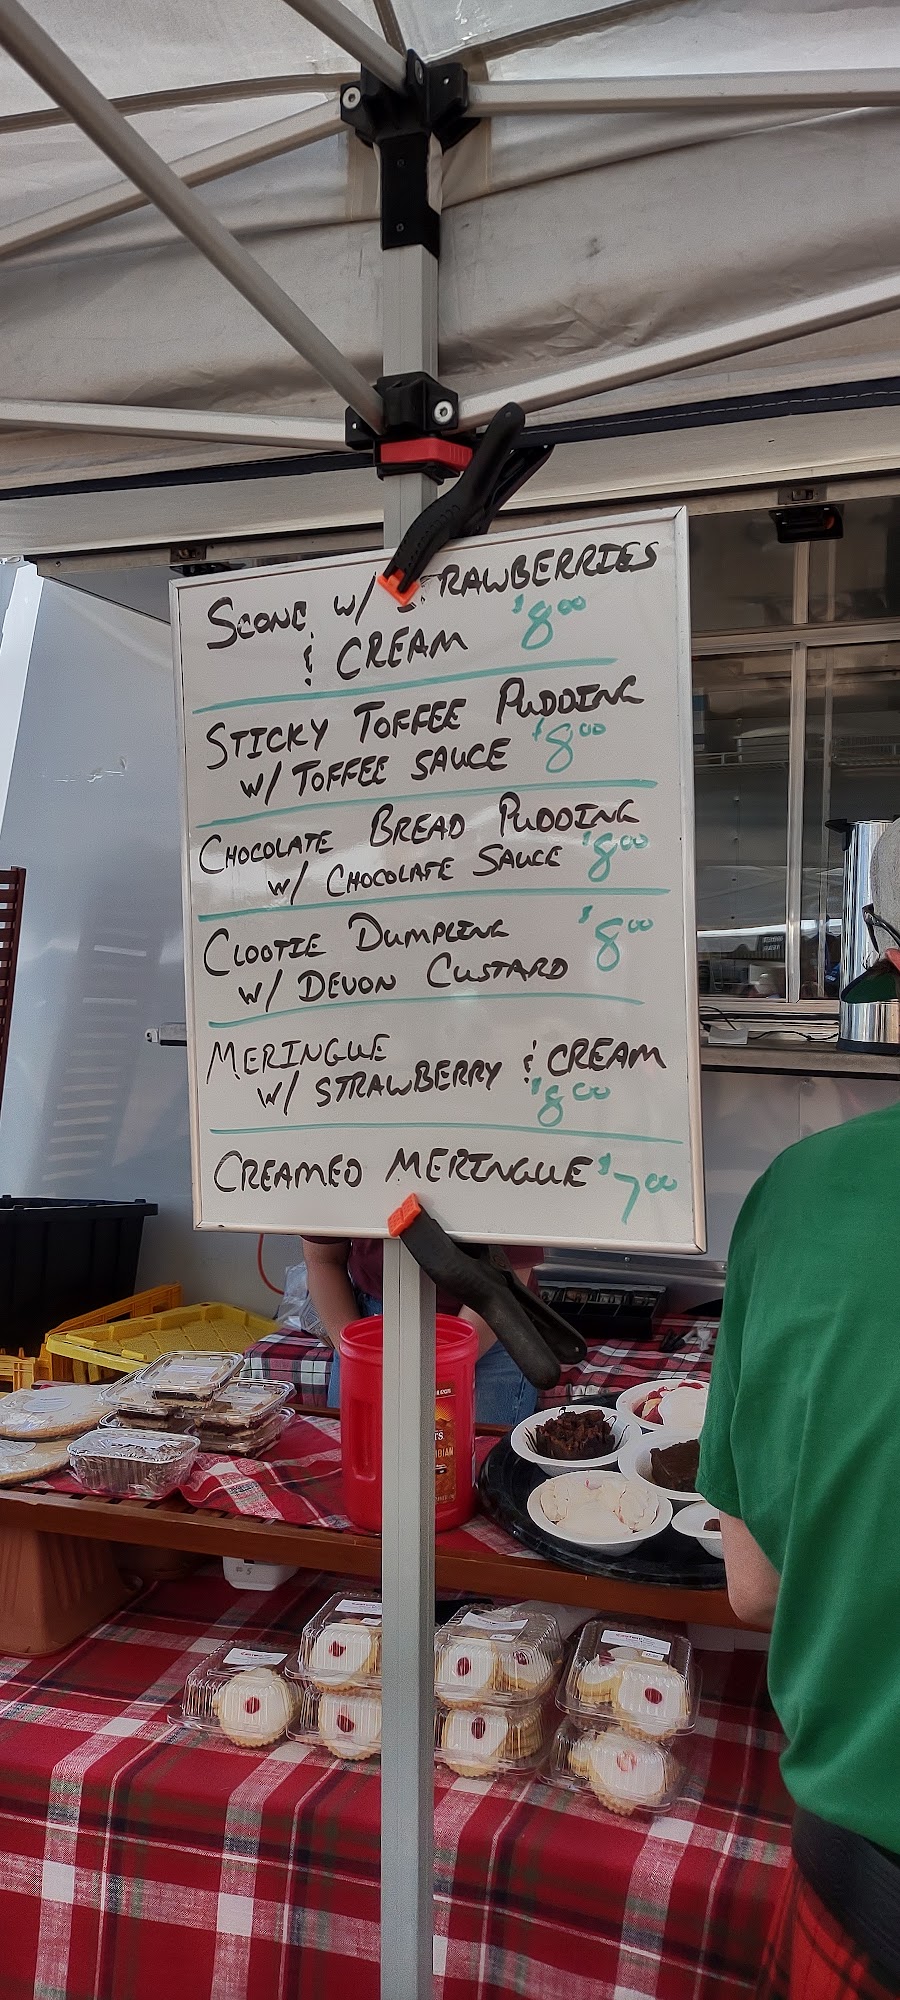 SCONE W/ STRAWBERRIES
& CREAM $8.00
STICKY TOFFEE PUDDING
W/ TOFFEE SAUCE $8.00
CHOCOLATE BREAD PUDDING
W/ CHOCOLATE SAUCE $8.00
CLOOTIE DUMPLING $8.00
W/ DEVON CUSTARD
MERINGUE
W/ STRAWBERRY & CREAM
$8.00
CREAMED MERINGUE $7.00